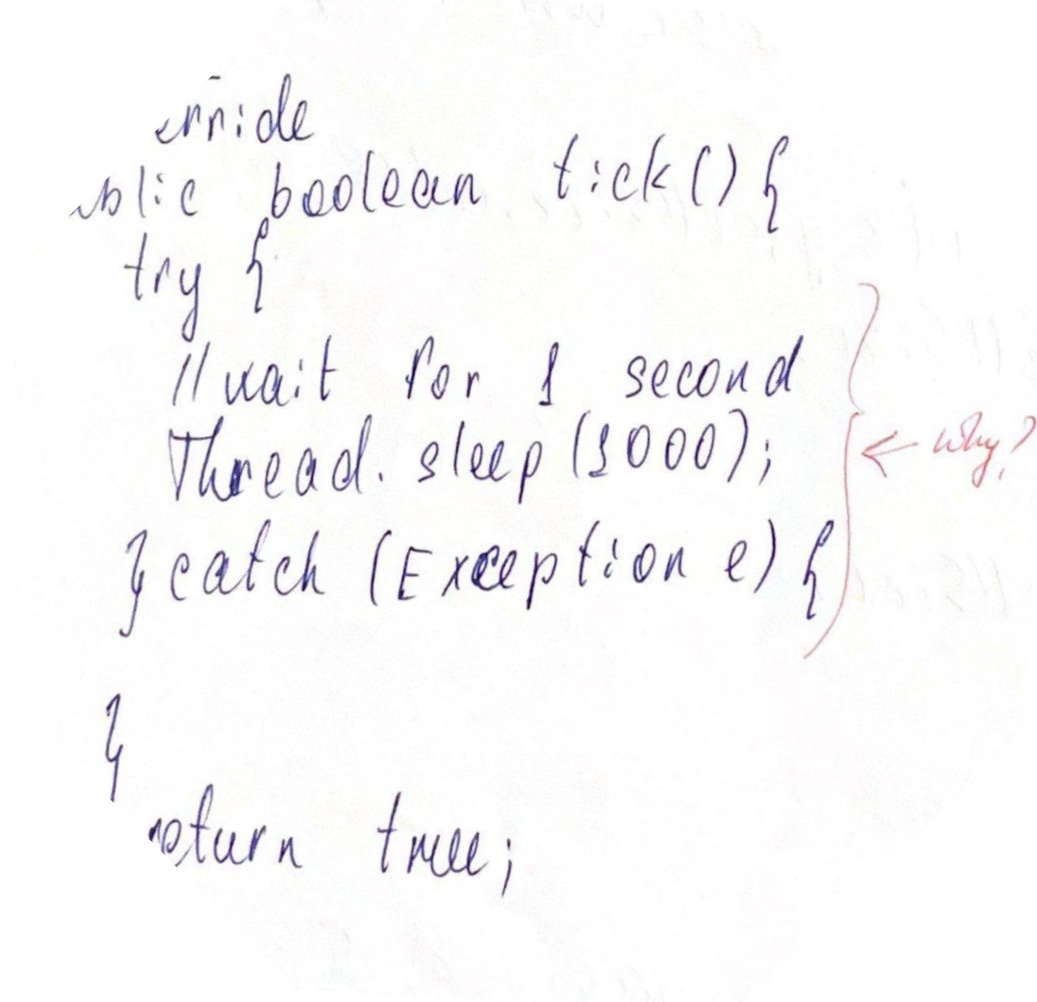 erride
ublic boolean tick(){
try {
//wait for 1 second
Thread.sleep(1000);
} catch (Exception e) {
← why?
}
return true;